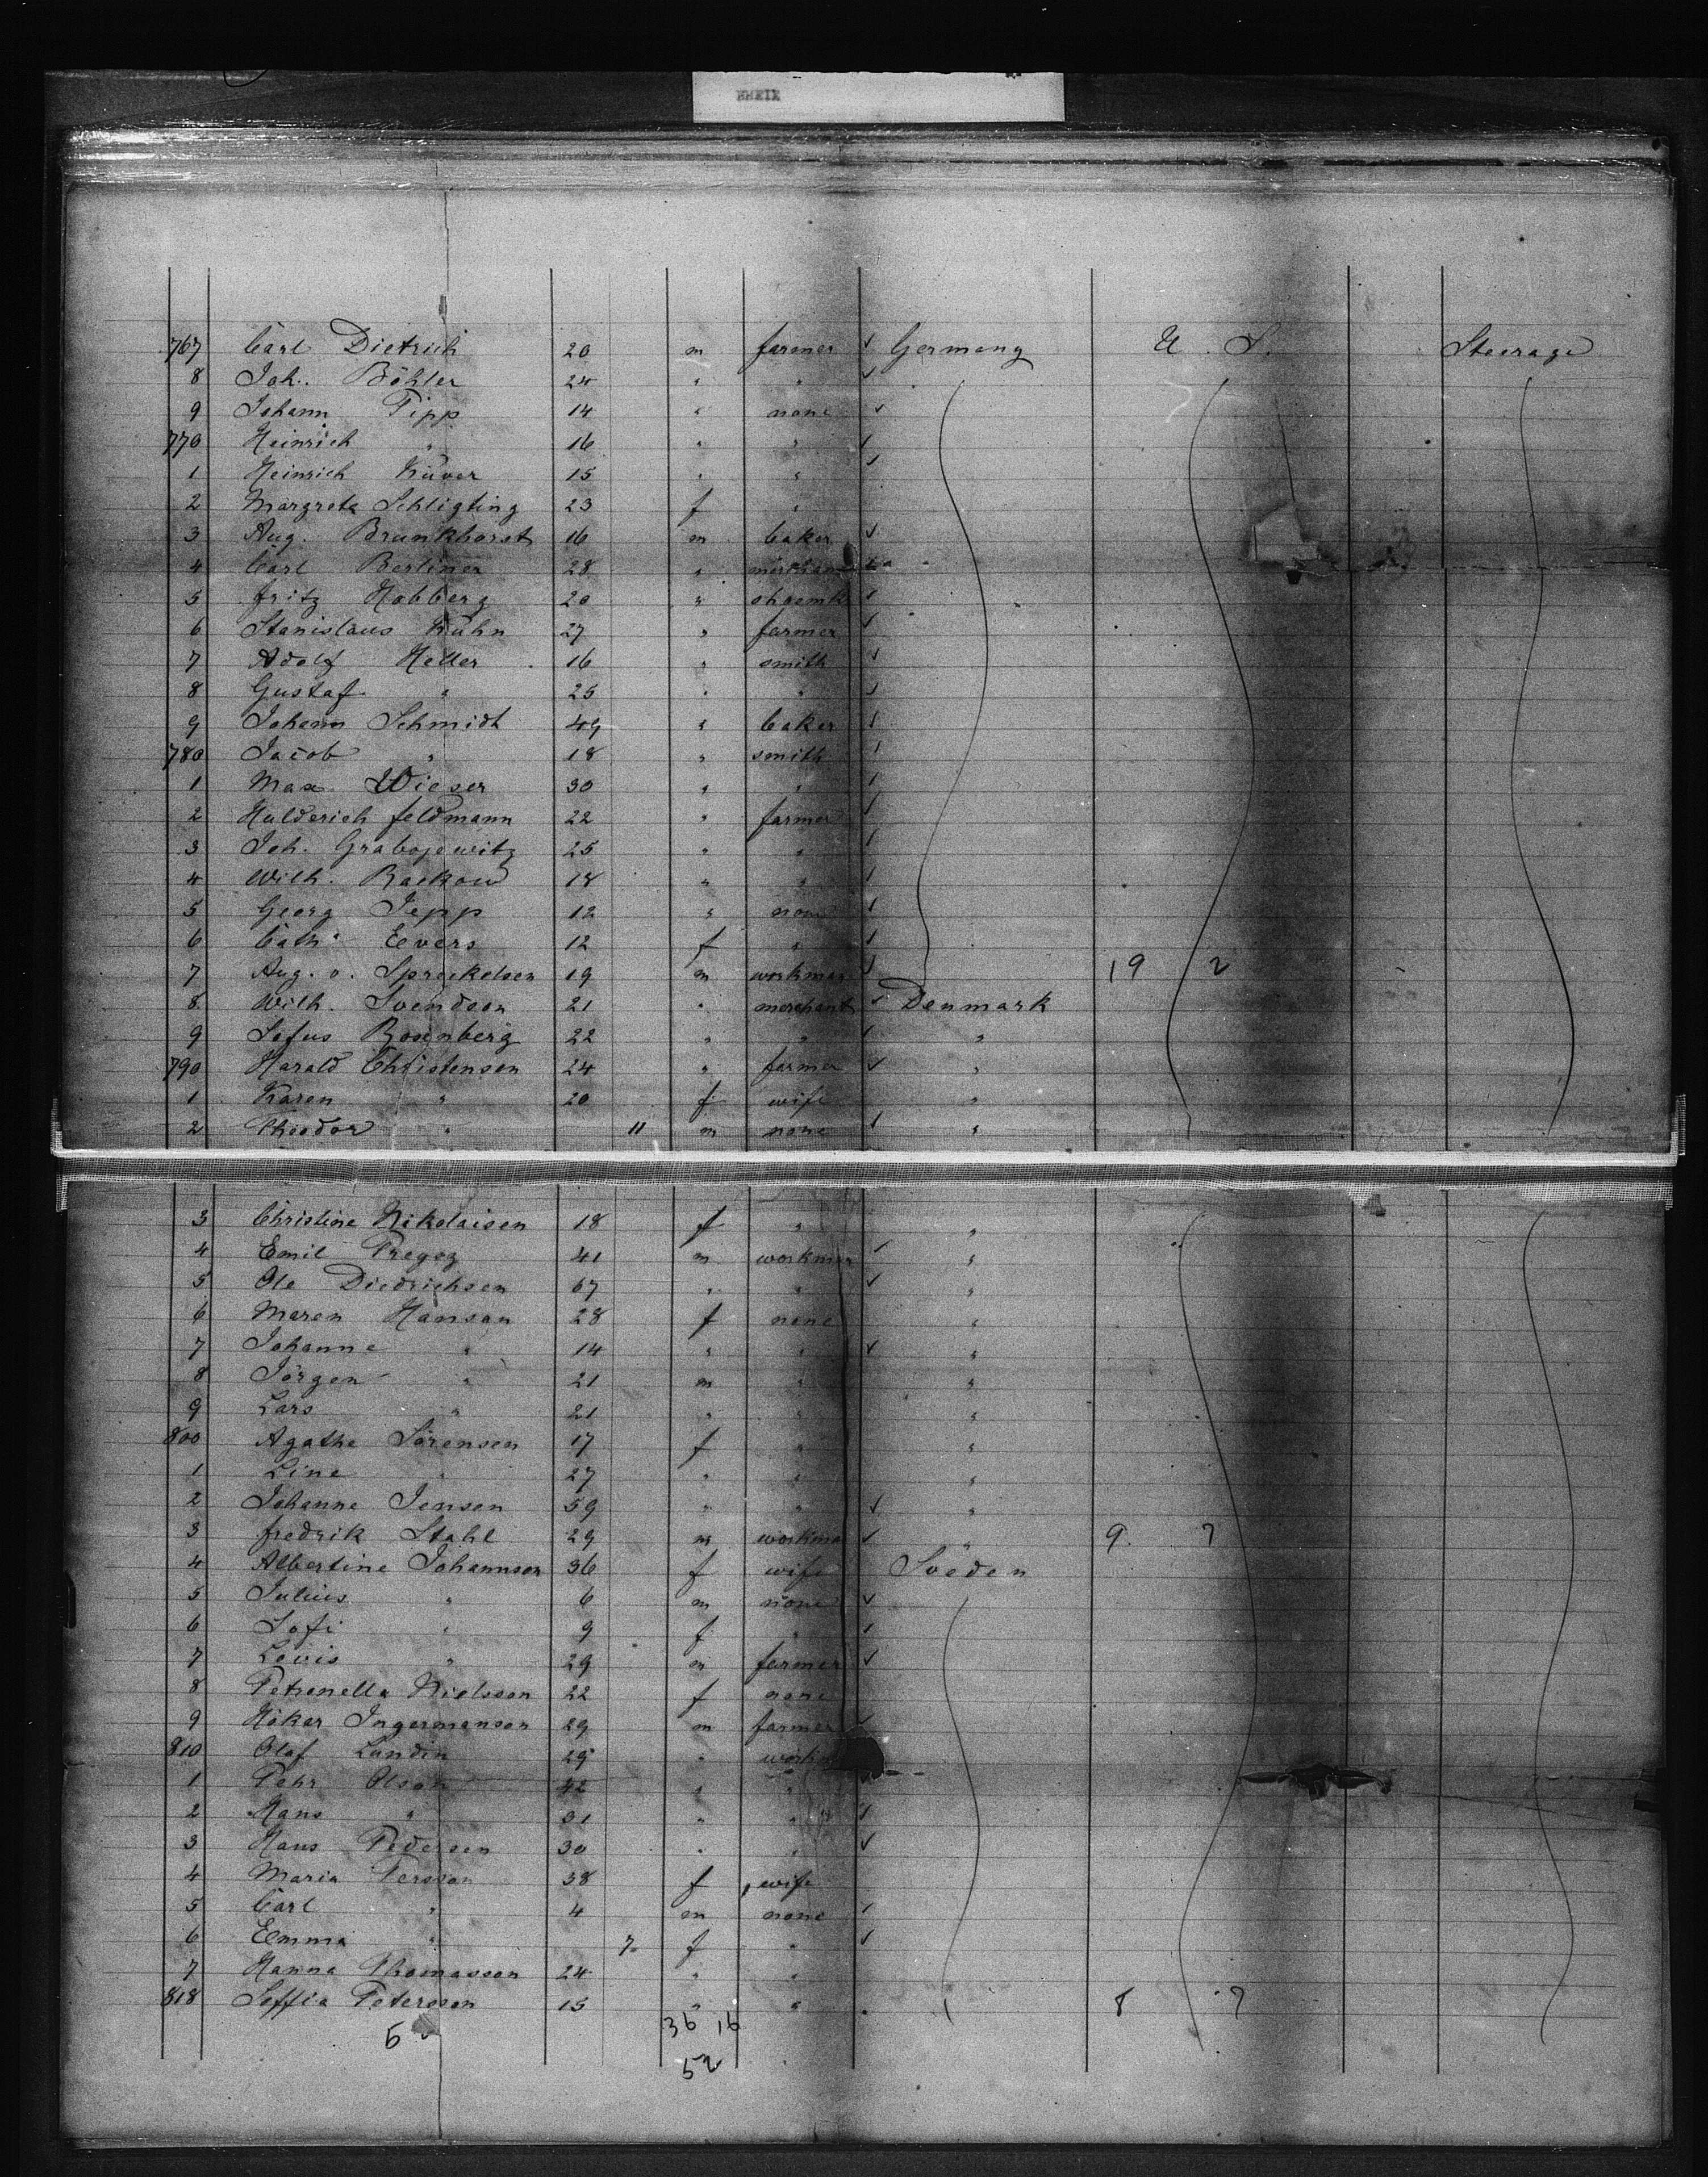 767 Carl Dietrich 20 m farmer ✓ Germany U. S. Steerage
8 Joh. Böhler 24 " " ✓
9 Johann Pipp 14 " none ✓
770 Heinrich " 16 " " ✓
1 Heinrich Küver 15 " " ✓
2 Margreta Schligting 23 f "
3 Aug. Brunkhorst 16 m baker ✓
4 Carl Berliner 28 "
5 Fritz Hobberg 20 " shoemk ✓
6 Stanislaus Kuhn 27 " farmer ✓
7 Adolf Heller 16 " smith ✓
8 Gustaf " 25 " " ✓
9 Johann Schmidt 49 " baker ✓
780 Jacob " 18 " smith ✓
1 Max Wieser 30 " " ✓
2 Hulderich Feldmann 22 " farmer ✓
3 Joh. Grabojewitz 25 " " ✓
4 Wilh. Rackow 18 " " ✓
5 Georg Jepp 12 " none ✓
6 Cath. Eevers 12 f " ✓
7 Aug. v. Spreckelsen 19 m workman ✓ 19 2
8 Wilh. Svendsen 21 " merchant ✓ Denmark
9 Sofus Rosenberg 22 " " ✓ "
790 Harald Christensen 24 " farmer ✓ "
1 Karen " 20 f wife "
2 Theodor " 11 m none ✓ "
3 Christine Nikolaisen 18 f " "
4 Emil 41 m workman ✓ "
5 Ole Diedrichsen 67 " " ✓ "
6 Maren Hansen 28 f none "
7 Johanne " 14 " " ✓ "
8 Jörgen " 21 m " "
9 Lars " 21 " " "
800 Agathe Sörensen 17 f " "
1 Line " 27 " " "
2 Johanne Jensen 59 " " ✓ "
3 Fredrik Stahl 29 m workma ✓ " 9 7
4 Albertine Johannson 36 f wife Sveden
5 Julius " 6 m none ✓
6 Sofi " 9 f " ✓
7 Lovis " 29 m farmer ✓
8 Petronella Nielsson 22 f none
9 Höker Ingermanson 29 m farmer ✓
810 Olaf Lundin 29 " workm
1 Pehr Olson 42 " "
2 Hans " 31 " " ✓
3 Hans Pedersen 30 " " ✓
4 Maria Persson 38 f wife
5 Carl " 4 m none ✓
6 Eemma " 7 f " ✓
7 Hanna Thomasson 24 " "
818 Soffia Petersson 15 " " 8 7
5 36 16
52